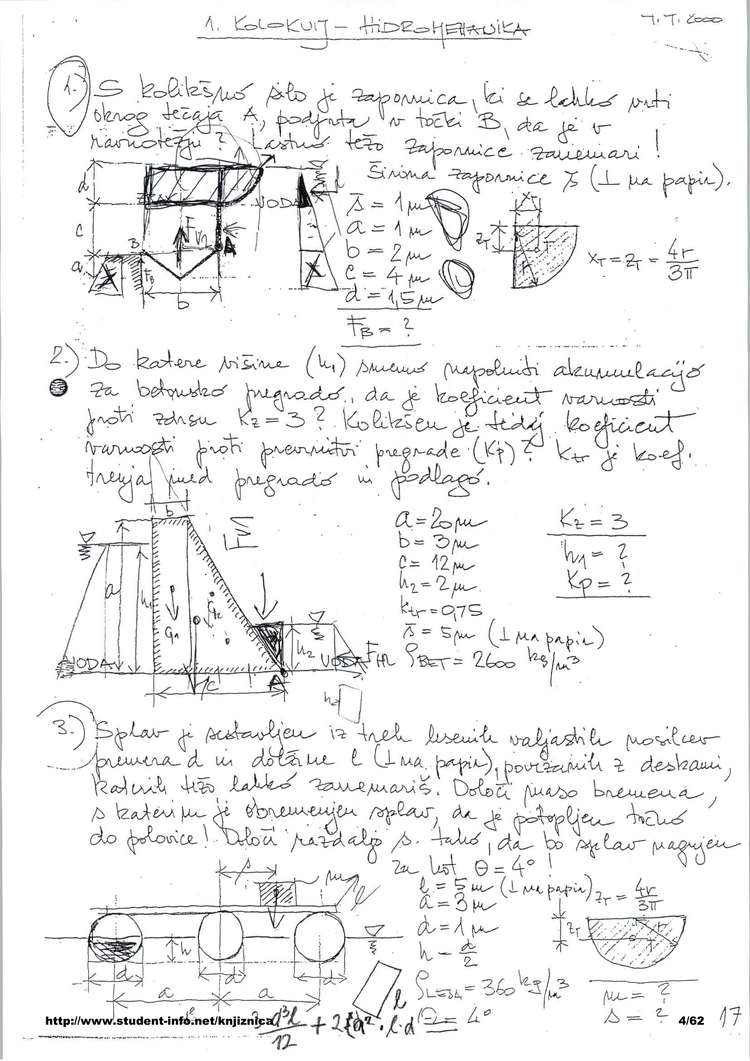 1. KOLOKVIJ – HIDROMEHANIKA
7.7.2000
1.) S kolikšno silo je zapornica, ki se lahko vrti
okrog tečaja A, podprta v točki B, da je v
ravnotežju? Lastno težo zapornice zanemari!
Širina zapornice š (⊥ na papir).
d
c
a
VODA
B
A
F_B
b
š = 1m
a = 1m
b = 2m
c = 4m
d = 1,5m
F_B = ?
x_T
z_T
T
r
x_T = z_T = 4r/3π
2.) Do katere višine (h₁) smemo napolniti akumulacijo
za betonsko pregrado, da je koeficient varnosti
proti zdrsu K_Z = 3? Kolikšen je tedaj koeficient
varnosti proti prevrnitvi pregrade (K_P)? K_tr je koef.
trenja med pregrado in podlago.
b
a
h₁
G₁
G₂
VODA
c
A
h₂
VODA
a = 20m
b = 3m
c = 12m
h₂ = 2m
k_tr = 0,75
š = 5m (⊥ na papir)
ρ_BET = 2600 kg/m³
K_Z = 3
h₁ = ?
K_P = ?
3.) Splav je sestavljen iz treh lesenih valjastih nosilcev
premera d in dolžine l (⊥ na papir), povezanih z deskami,
katerih težo lahko zanemariš. Določi maso bremena,
s katerim je obremenjen splav, da je potopljen točno
do polovice! Določi razdaljo s tako, da bo splav nagnjen
za kot Θ = 4°!
s
m
l
h
d
d
d
a
a
l = 5m (⊥ na papir)
a = 3m
d = 1m
h = d/2
ρ_LESA = 360 kg/m³
Θ = 4°
z_T = 4r/3π
z_T
m = ?
s = ?
http://www.student-info.net/knjiznica
4/62
17